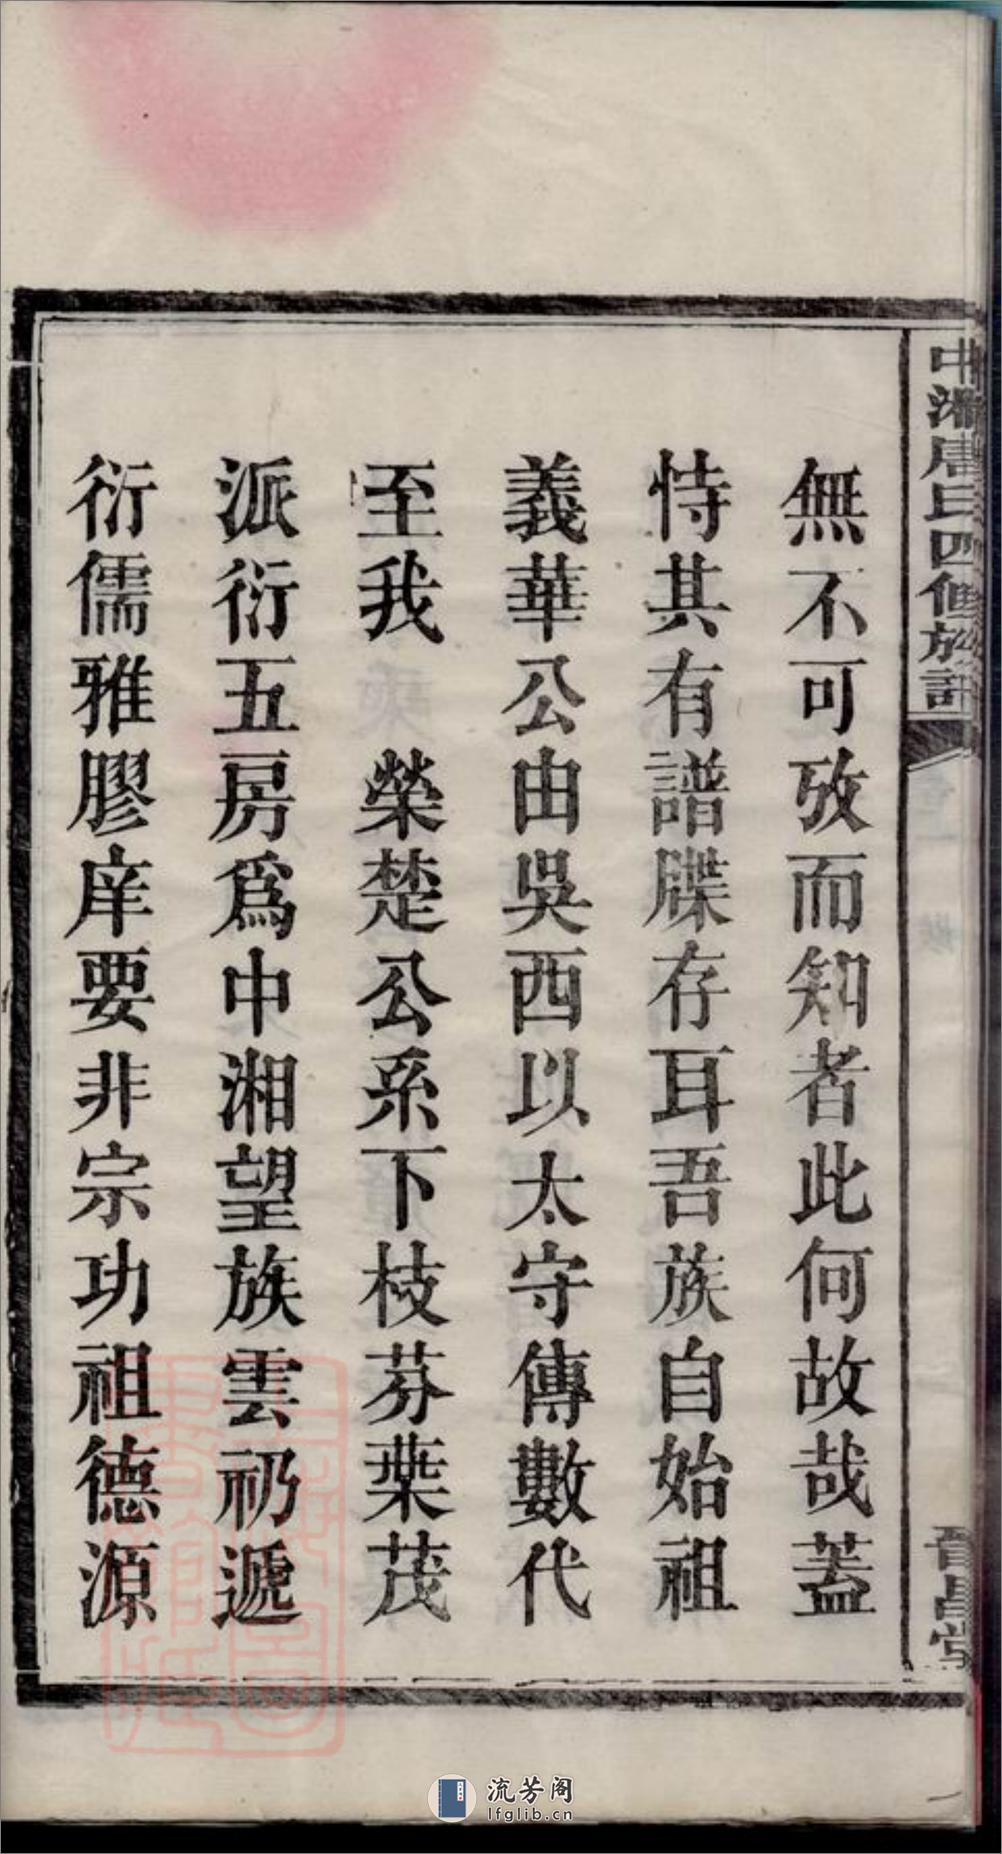 中湘唐氏四修族譜
晉昌堂
無不可攷而知者此何故哉蓋
恃其有譜牒存耳吾族自始祖
義華公由吳西以太守傳數代
至我　榮楚公系下枝芬葉茂
派衍五房爲中湘望族雲礽遞
衍儒雅膠庠要非宗功祖德源
流芳阁
lfglib.cn